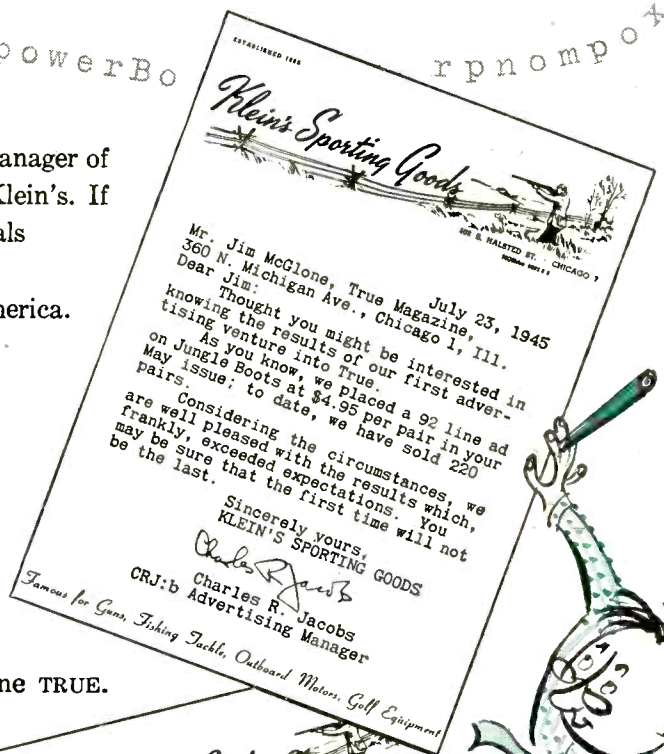 powerBo
rpnompox
anager of
Klein's. If
als
merica.
ne TRUE.
ESTABLISHED
Klein's Sporting Goods
HALSTED ST. CHICAGO 7
July 23, 1945
Mr. Jim McGlone, True Magazine,
360 N. Michigan Ave., Chicago 1, Ill.
Dear Jim:
Thought you might be interested in
knowing the results of our first adver-
tising venture into True.
As you know, we placed a 92 line ad
on Jungle Boots at $4.95 per pair in your
May issue; to date, we have sold 220
pairs.
Considering the circumstances, we
are well pleased with the results which,
frankly, exceeded expectations. You
may be sure that the first time will not
be the last.
Sincerely yours,
KLEIN'S SPORTING GOODS
Charles R. Jacobs
Charles R. Jacobs
CRJ:b Advertising Manager
Famous for Guns, Fishing Tackle, Outboard Motors, Golf Equipment